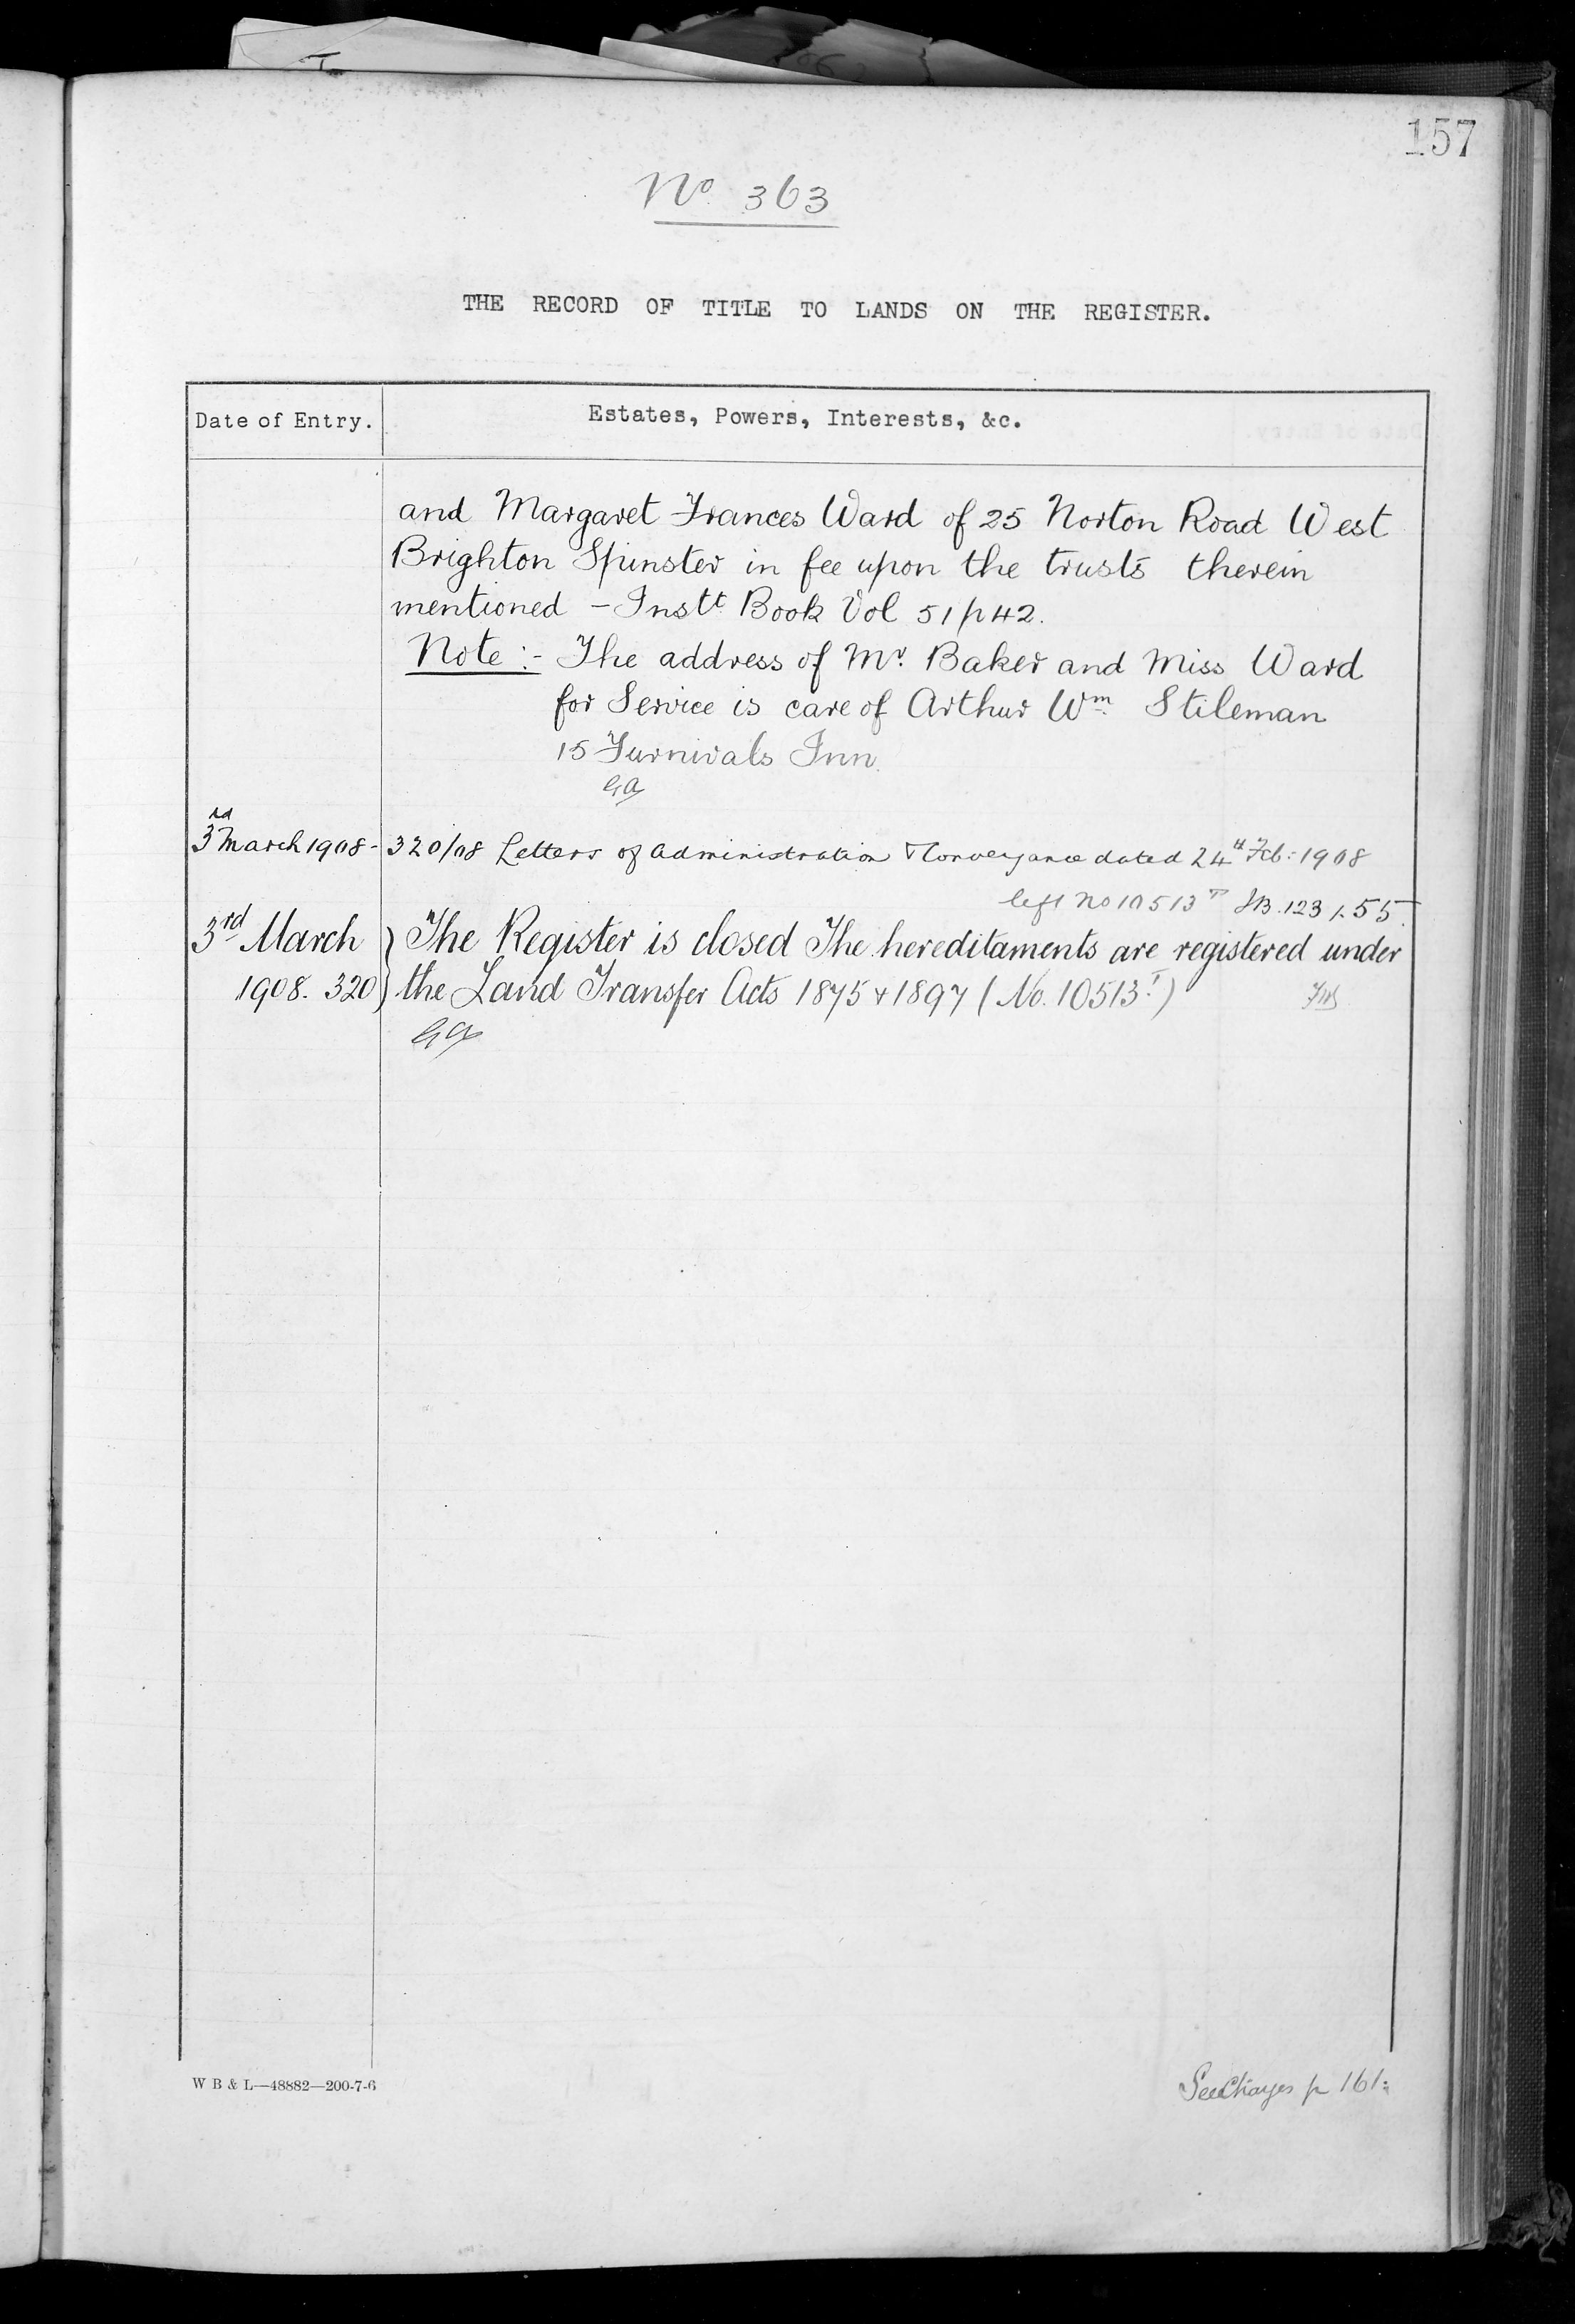 157
No. 363
THE RECORD OF TITLE TO LANDS ON THE REGISTER.
Date of Entry.
Estates, Powers, Interests, &c.
and Margaret Frances Ward of 25 Norton Road West
Brighton Spinster in fee upon the trusts therein
mentioned - Instt Book Vol 51 p 42.
Note :- The address of Mr. Baker and Miss Ward
for Service is care of Arthur Wm. Stileman
15 Furnivals Inn.
3rd March 1908 - 320/08 Letters of Administration & Conveyance dated 24th Feb: 1908
left No 10513 IB. 123 p. 55.
3rd March } The Register is closed The hereditaments are registered under
1908. 320 } the Land Transfer Acts 1875 & 1897 (No. 10513.I)
W B & L—48882—200-7-6
See Charges p 161.